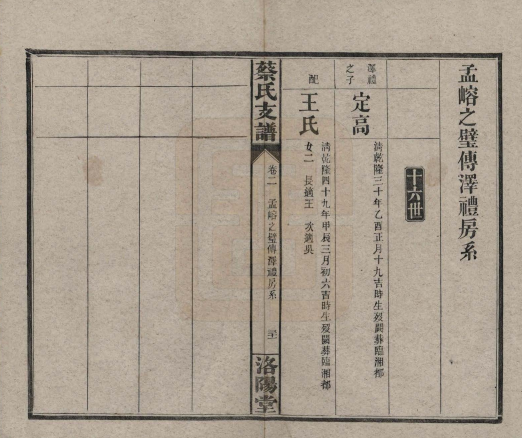 孟嵱之璧傳澤禮房系
十六世
澤禮之子
定高
清乾隆三十年乙酉正月十九吉時生歿闕葬臨湘都
配
王氏
清乾隆四十九年甲辰三月初六吉時生歿闕葬臨湘都
女二 長適王 次適吳
蔡氏支譜
卷二 孟嵱之璧傳澤禮房系
洛陽堂